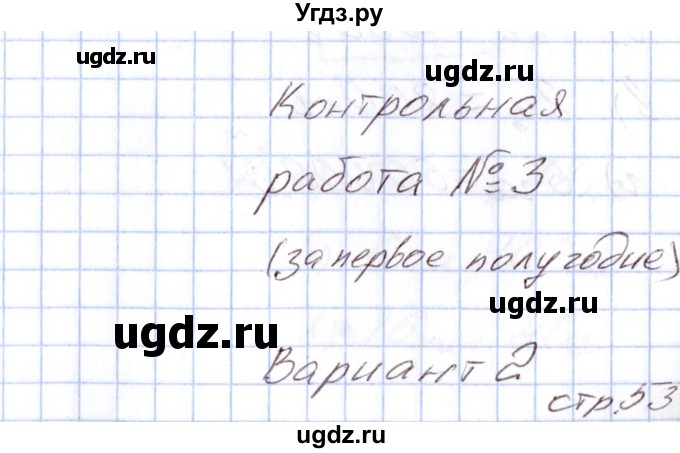 Угдз.ру
ugdz.ru
ugdz.ru
Контрольная
работа № 3
(за первое полугодие)
ugdz.ru
ugdz.ru
Вариант 2
стр.53
ugdz.ru